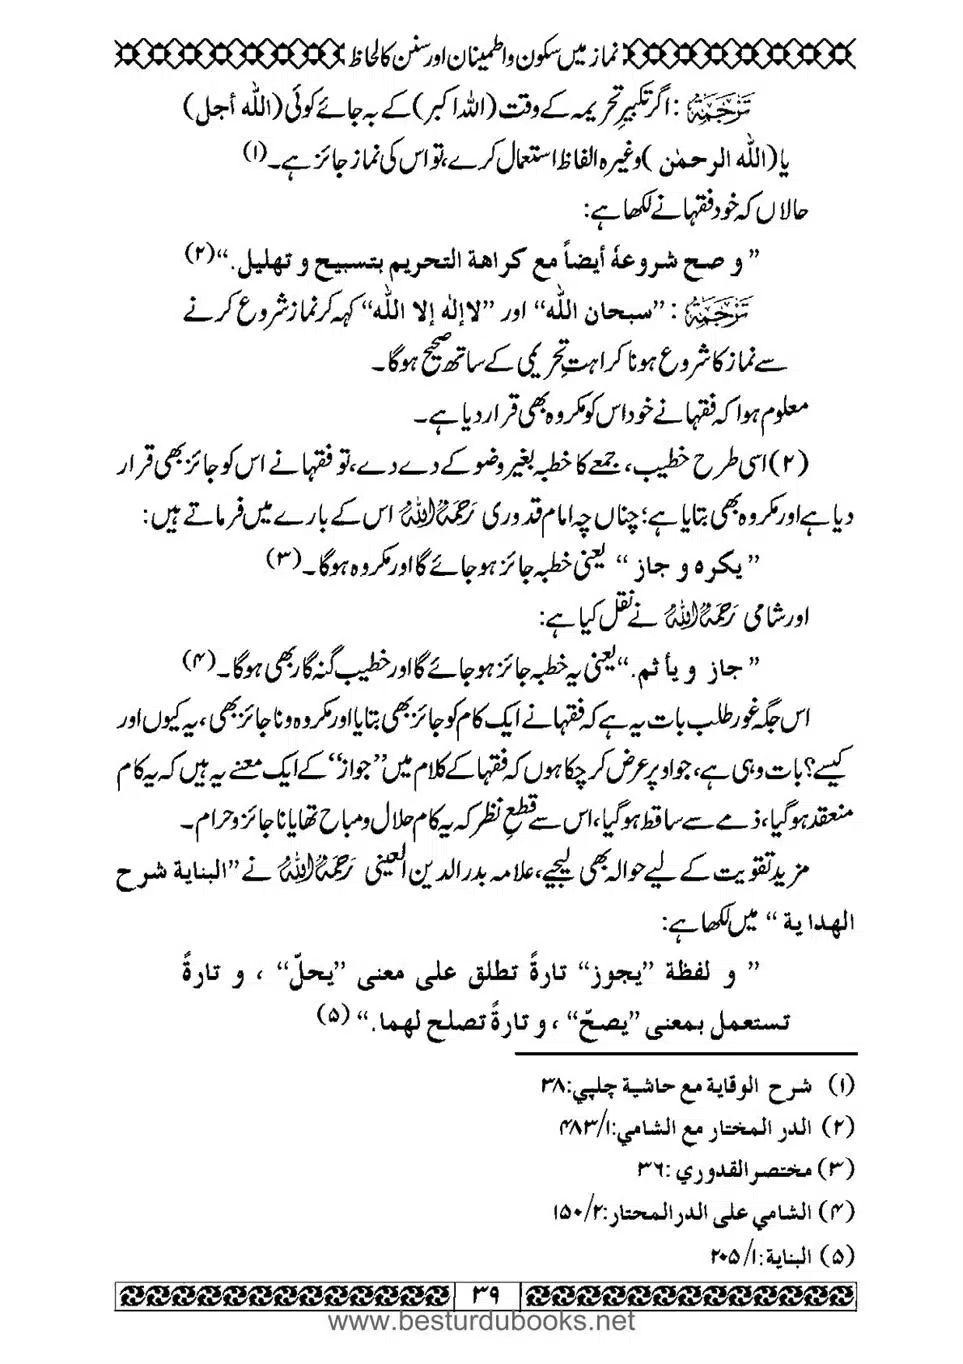 نماز میں سکون و اطمینان اور سنن کا لحاظ
تَرْجَمَہ : اگر تکبیرِ تحریمہ کے وقت (اللہ اکبر) کے بہ جائے کوئی (اللّٰہ أجل)
یا (اللّٰہ الرحمٰن) وغیرہ الفاظ استعمال کرے، تو اس کی نماز جائز ہے۔(۱)
حالاں کہ خود فقہا نے لکھا ہے:
” و صح شروعهُ أيضاً مع كراهة التحريم بتسبيح و تهليل.“(۲)
تَرْجَمَہ : ”سبحان اللّٰہ“ اور ”لاإلٰہ إلا اللّٰہ“ کہہ کر نماز شروع کرنے
سے نماز کا شروع ہونا کراہتِ تحریمی کے ساتھ صحیح ہوگا۔
معلوم ہوا کہ فقہا نے خود اس کو مکروہ بھی قرار دیا ہے۔
(۲) اسی طرح خطیب، جمعے کا خطبہ بغیر وضو کے دے دے، تو فقہا نے اس کو جائز بھی قرار
دیا ہے اور مکروہ بھی بتایا ہے؛ چناں چہ امام قدوری رَحِمَهُ اللّٰهُ اس کے بارے میں فرماتے ہیں:
” یکره و جاز “ یعنی خطبہ جائز ہو جائے گا اور مکروہ ہوگا۔(۳)
اور شامی رَحِمَهُ اللّٰهُ نے نقل کیا ہے:
” جاز و يأثم.“ یعنی یہ خطبہ جائز ہو جائے گا اور خطیب گنہ گار بھی ہوگا۔(۴)
اس جگہ غور طلب بات یہ ہے کہ فقہا نے ایک کام کو جائز بھی بتایا اور مکروہ و ناجائز بھی، یہ کیوں اور
کیسے؟ بات وہی ہے، جو اوپر عرض کر چکا ہوں کہ فقہا کے کلام میں ”جواز“ کے ایک معنے یہ ہیں کہ یہ کام
منعقد ہوگیا، ذمے سے ساقط ہوگیا، اس سے قطعِ نظر کہ یہ کام حلال و مباح تھا یا ناجائز و حرام۔
مزید تقویت کے لیے حوالہ بھی لیجیے، علامہ بدر الدین العینی رَحِمَهُ اللّٰهُ نے ”البناية شرح
الهداية “ میں لکھا ہے:
” و لفظة ”يجوز“ تارةً تطلق على معنى ”يحلّ“ ، و تارةً
تستعمل بمعنى ”يصحّ“ ، و تارةً تصلح لهما.“ (۵)
(۱) شرح الوقاية مع حاشية چلپي:۳۸
(۲) الدر المختار مع الشامي:۱/۴۸۳
(۳) مختصر القدوري :۳۶
(۴) الشامي على الدر المحتار:۲/۱۵۰
(۵) البناية:۱/۲۰۵
۳۹
www.besturdubooks.net